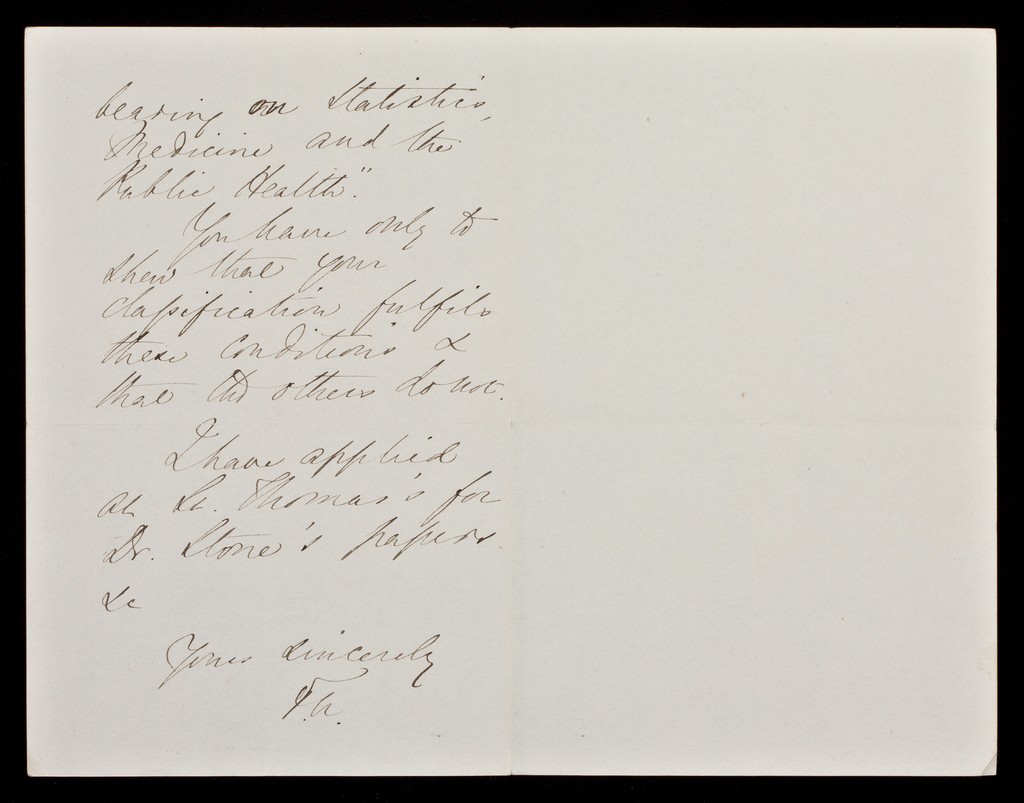 bearing on Statistics,
Medicine and the
Public Health."
You have only to
shew that your
classification fulfils
these conditions &
that the others do not.
I have applied
at St. Thomas's for
Dr. Stone's papers
&c
Yours sincerely